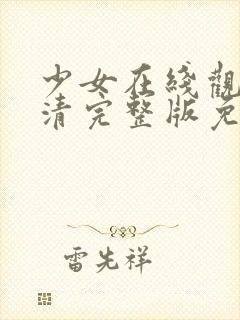 少女在线觀
清完整版免
雷先祥